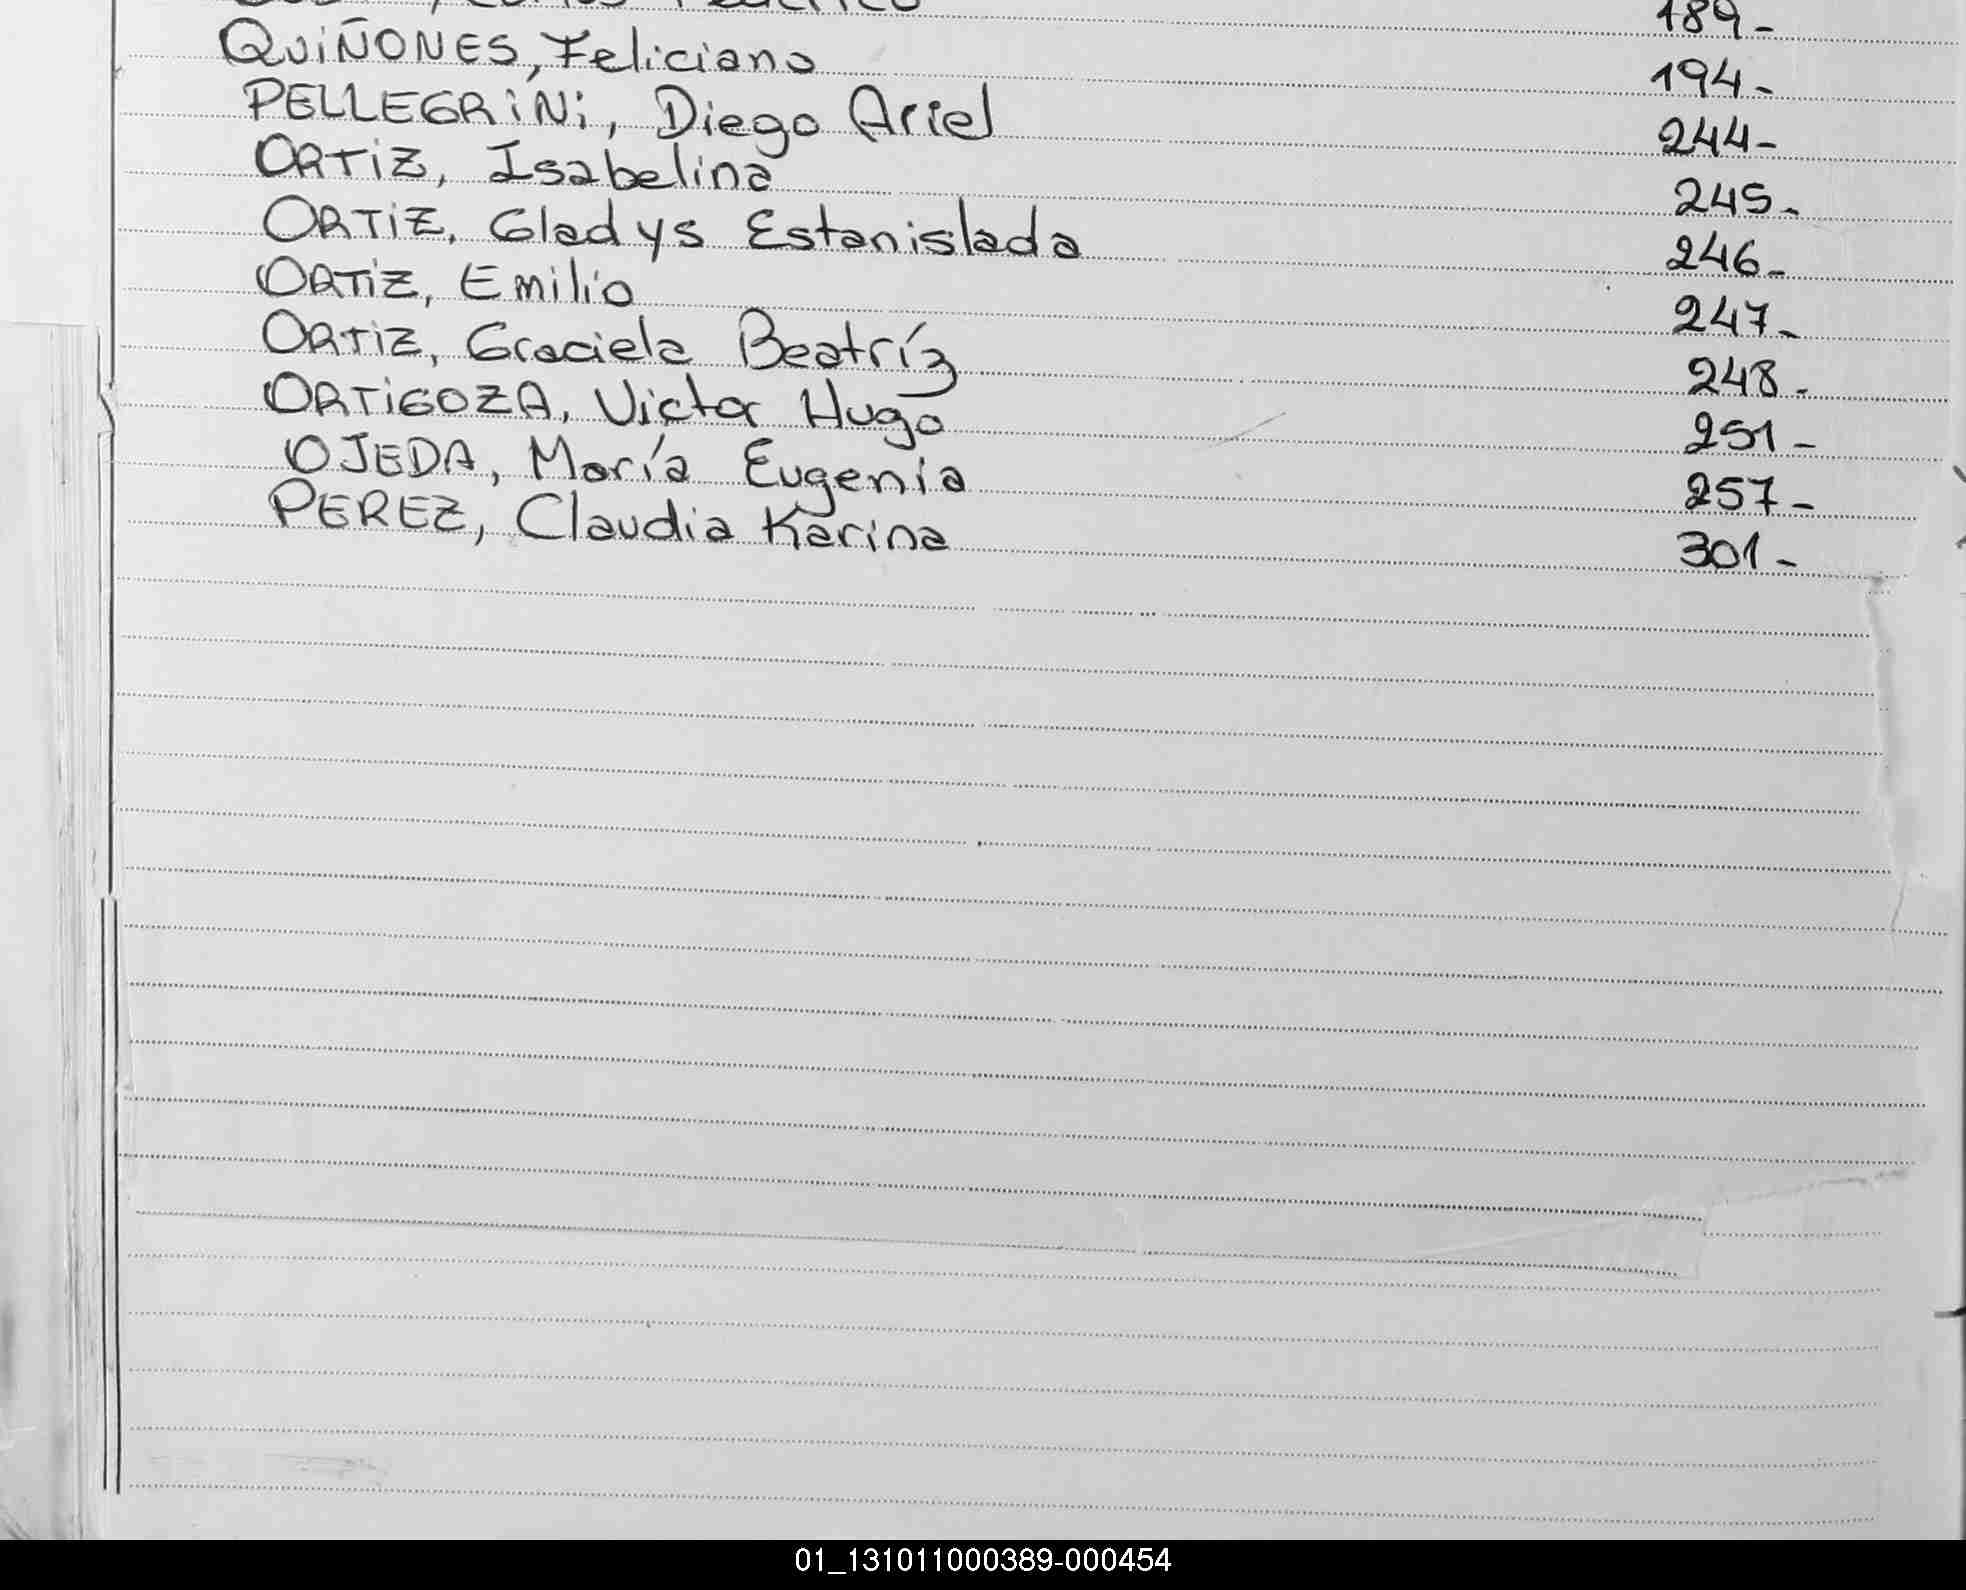 189-
QUIÑONES, Feliciano 194-
PELLEGRINI, Diego Ariel 244-
ORTIZ, Isabelina 245-
ORTIZ, Gladys Estanislada 246-
ORTIZ, Emilio 247-
ORTIZ, Graciela Beatríz 248-
ORTIGOZA, Victor Hugo 251-
OJEDA, María Eugenia 257-
PEREZ, Claudia Karina 301-
01_131011000389-000454